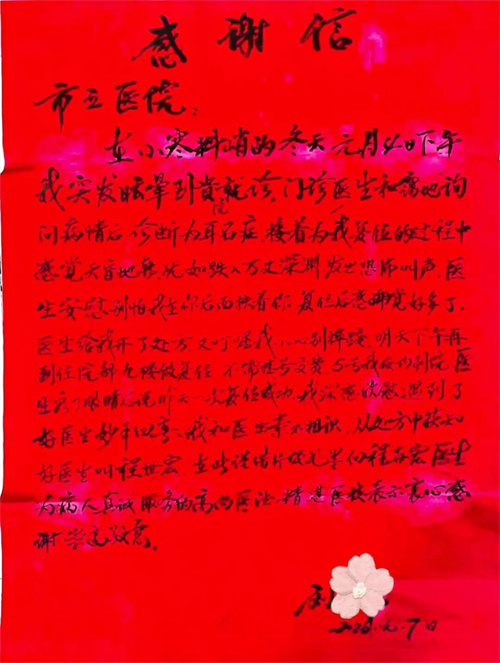 感谢信
市立医院：
在小寒料峭的冬天元月4日下午
我突发眩晕到贵院就诊，门诊医生和蔼地询
问病情后诊断为耳石症，接着为我复位的过程中
感觉天旋地转，犹如跌入万丈深渊发出恐怖叫声，医
生安慰别怕我在你后面扶着你，复位后感畸觉好多了，
医生给我开了处方又叮嘱我小心别摔跤，明天下午再
到住院部免费做复位，不需挂号交费，5号我复约到院，医
生看了眼睛后说昨天一次复位成功，我深感欣慰，遇到了
好医生妙手回春，我和医生素不相识，从处方中获知
好医生叫程世宏，在此谨借片纸
为病人真诚服务的高尚医德，精湛医技表示衷心感
谢
2026.元.7日